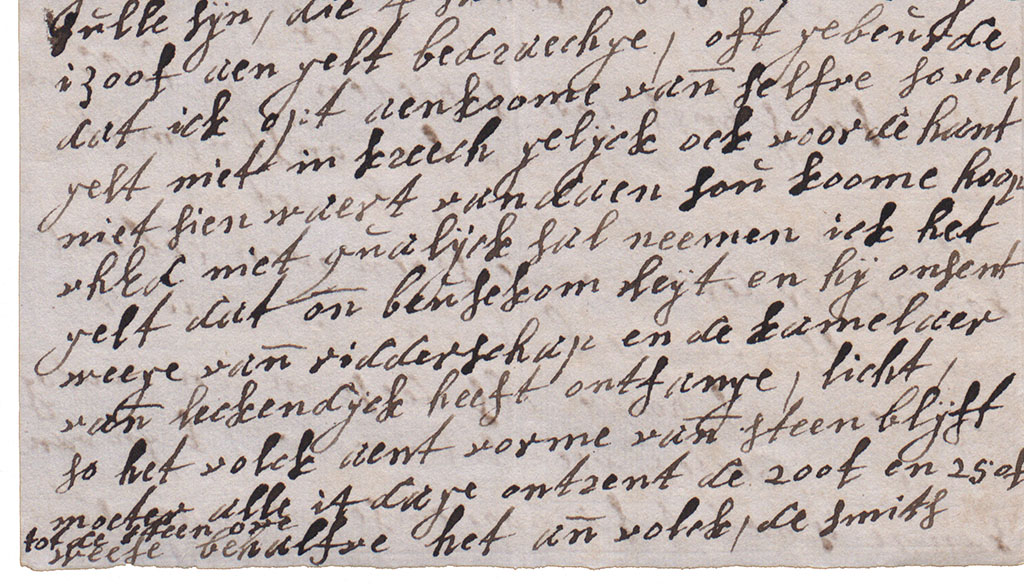 sulle sijn, die
1300f aen gelt bedraechge, oft gebeurde
dat ick opt aenkoome van selfve so veel
gelt niet in kreech gelijck ock voor de hant
niet sien waert vandaen sou koome hoop
vhEd niet qualijck sal neemen ick het
gelt dat on beusekom leijt en hij onsent
weege van ridderschap en de kamelaer
van leckendijck heeft ontfange, licht,
so het volck aent vorme van steen blijft
moeter alle dage ontrent de 200f en 250f
tot de steen ove
weese behalfve het an volck, de smits